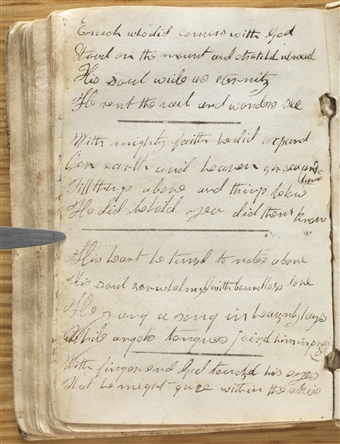 Enoch who did converse with God
Stood on the mount and stretchd abroad
His soul wide as eternity
He rent the vail and wonders see
With mighty faith he did expand
Oer earth and heaven ore sea and
land
Till things above and things below
He did behold yea did them know
His heart he tund to notes above
His soul orewhelmd with boundless love
He sung a song in heavnly lays
While angels tongues joind him in praise
With finger end God touchd his eyes
That he might gaze within the skies